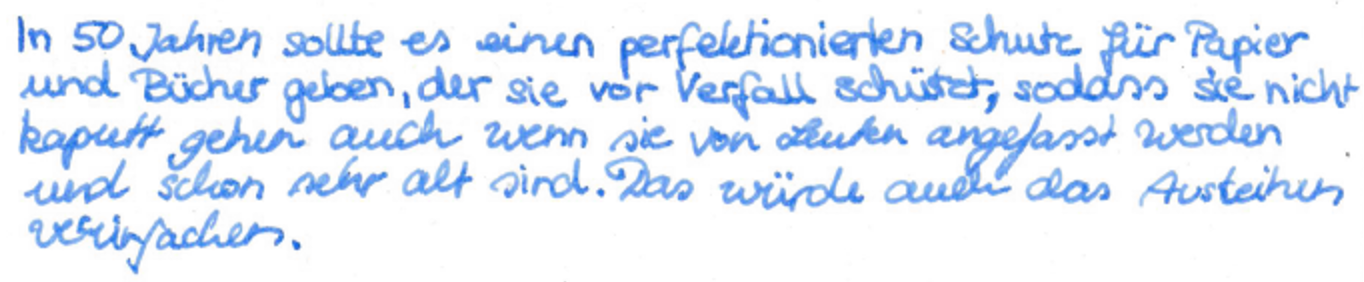 In 50 Jahren sollte es einen perfektionierten Schutz für Papier
und Bücher geben, der sie vor Verfall schützt, sodass sie nicht
kaputt gehen auch wenn sie von Leuten angefasst werden
und schon sehr alt sind. Das würde auch das Ausleihen
vereinfachen.